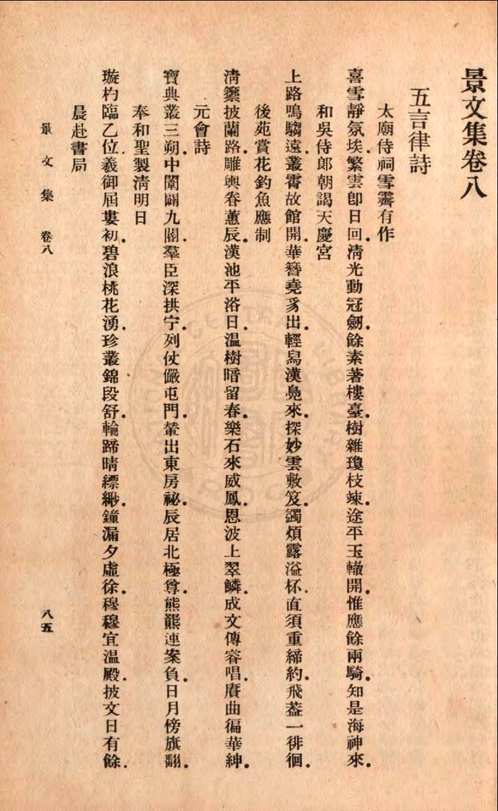 景文集卷八
五言律詩
太廟侍祠雪霽有作
喜雪靜氛埃。繁雲卽日回。淸光動冠劒。餘素著樓臺。樹雜瓊枝竦。途平玉轍開。惟應餘兩騎。知是海神來。
和吳侍郎朝謁天慶宮
上路鳴騶遠。叢霄故館開。華簪堯豸出。輕舄漢鳧來。探妙雲敷笈。蠲煩露溢杯。直須重締約。飛蓋一徘徊。
後苑賞花釣魚應制
淸籞披蘭路。雕輿春蕙辰。漢池平浴日。溫樹暗留春。樂石來威鳳。恩波上翠鱗。成文傳睿唱。賡曲徧華紳。
元會詩
寶典叢三朔。中闈闢九關。羣臣深拱宁。列仗儼屯門。輦出東房祕。辰居北極尊。熊羆連案負。日月傍旗翻。
奉和聖製淸明日
璇杓臨乙位。羲御屆婁初。碧浪桃花湧。珍叢錦段舒。輪蹄晴縹緲。鐘漏夕虛徐。穆穆宜溫殿。披文日有餘。
晨赴書局
景文集 卷八
八五